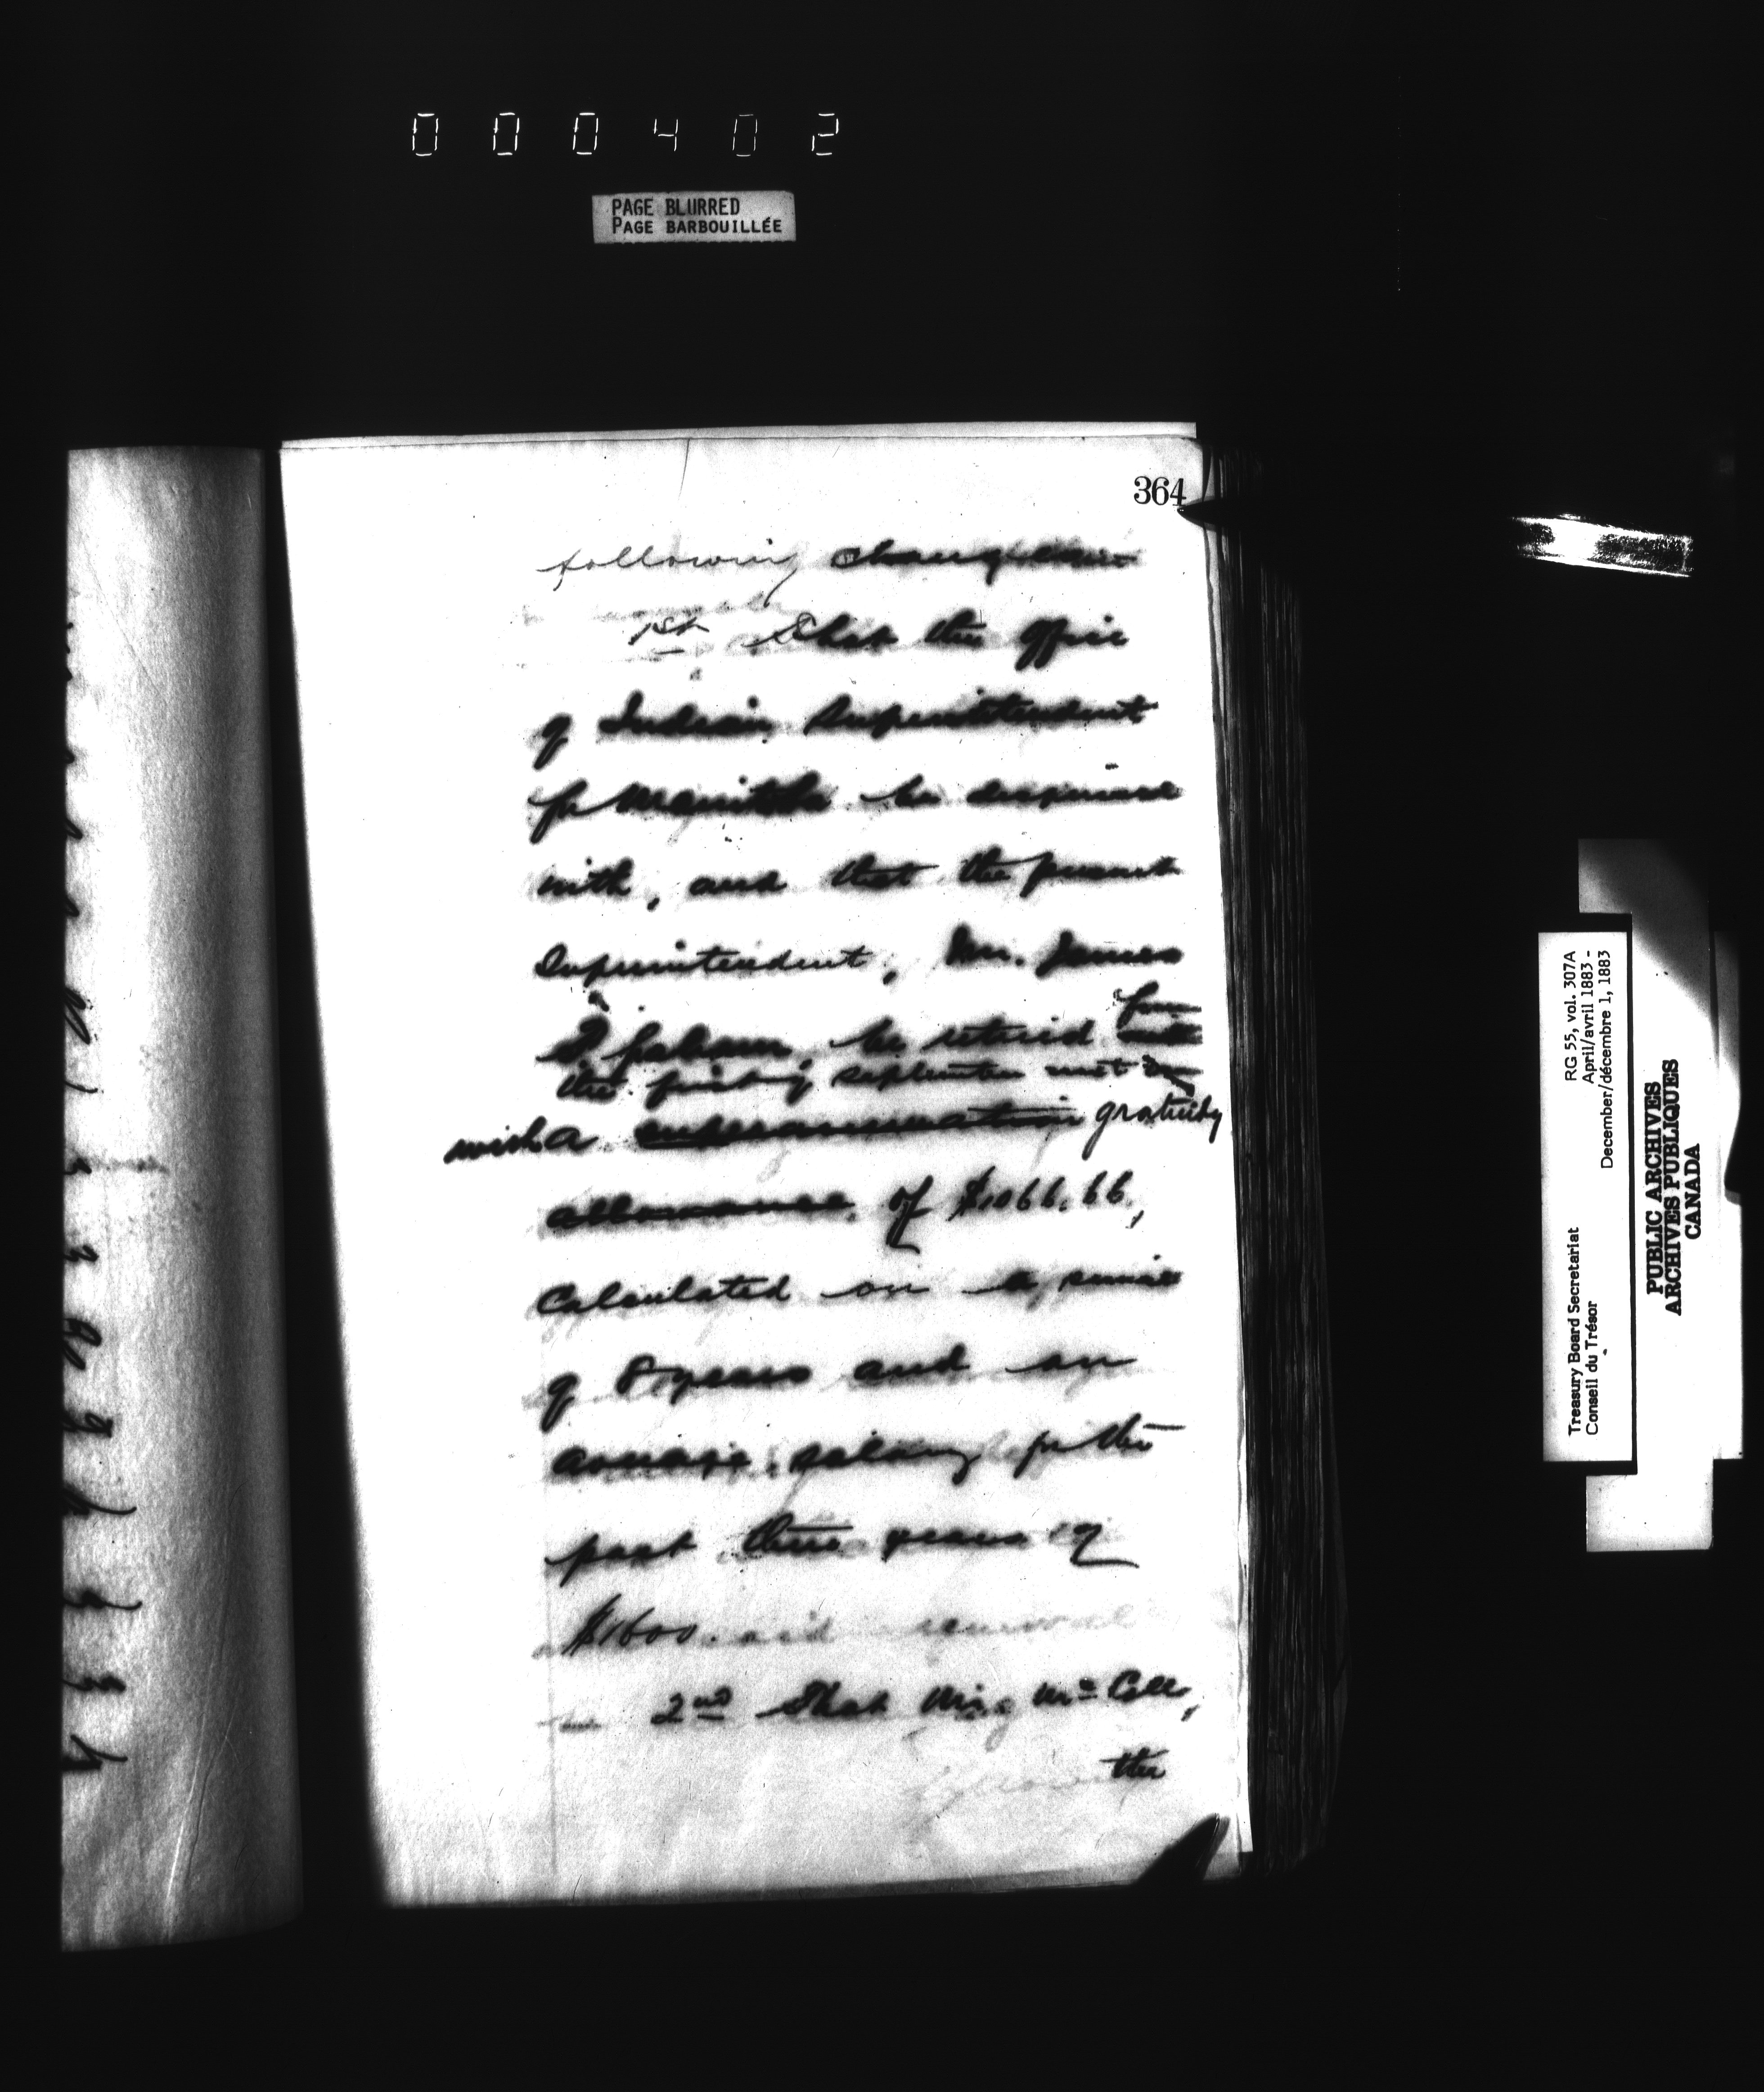 000402
PAGE BLURRED
PAGE BARBOUILLÉE
364
following changes
1st That the office
of Indian Superintendent
for Manitoba be dispensed
with, and that the present
Superintendent, Mr. James
F. Graham, be retired from
the first of September next
with a superannuation gratuity
allowance of $1066.66,
Calculated on a service
of 8 years and an
average salary for the
past three years of
$1600.
2nd That Mr. McColl,
the
Treasury Board Secretariat
Conseil du Trésor
RG 55, vol. 307A
April/avril 1883 -
December/décembre 1, 1883
PUBLIC ARCHIVES
ARCHIVES PUBLIQUES
CANADA